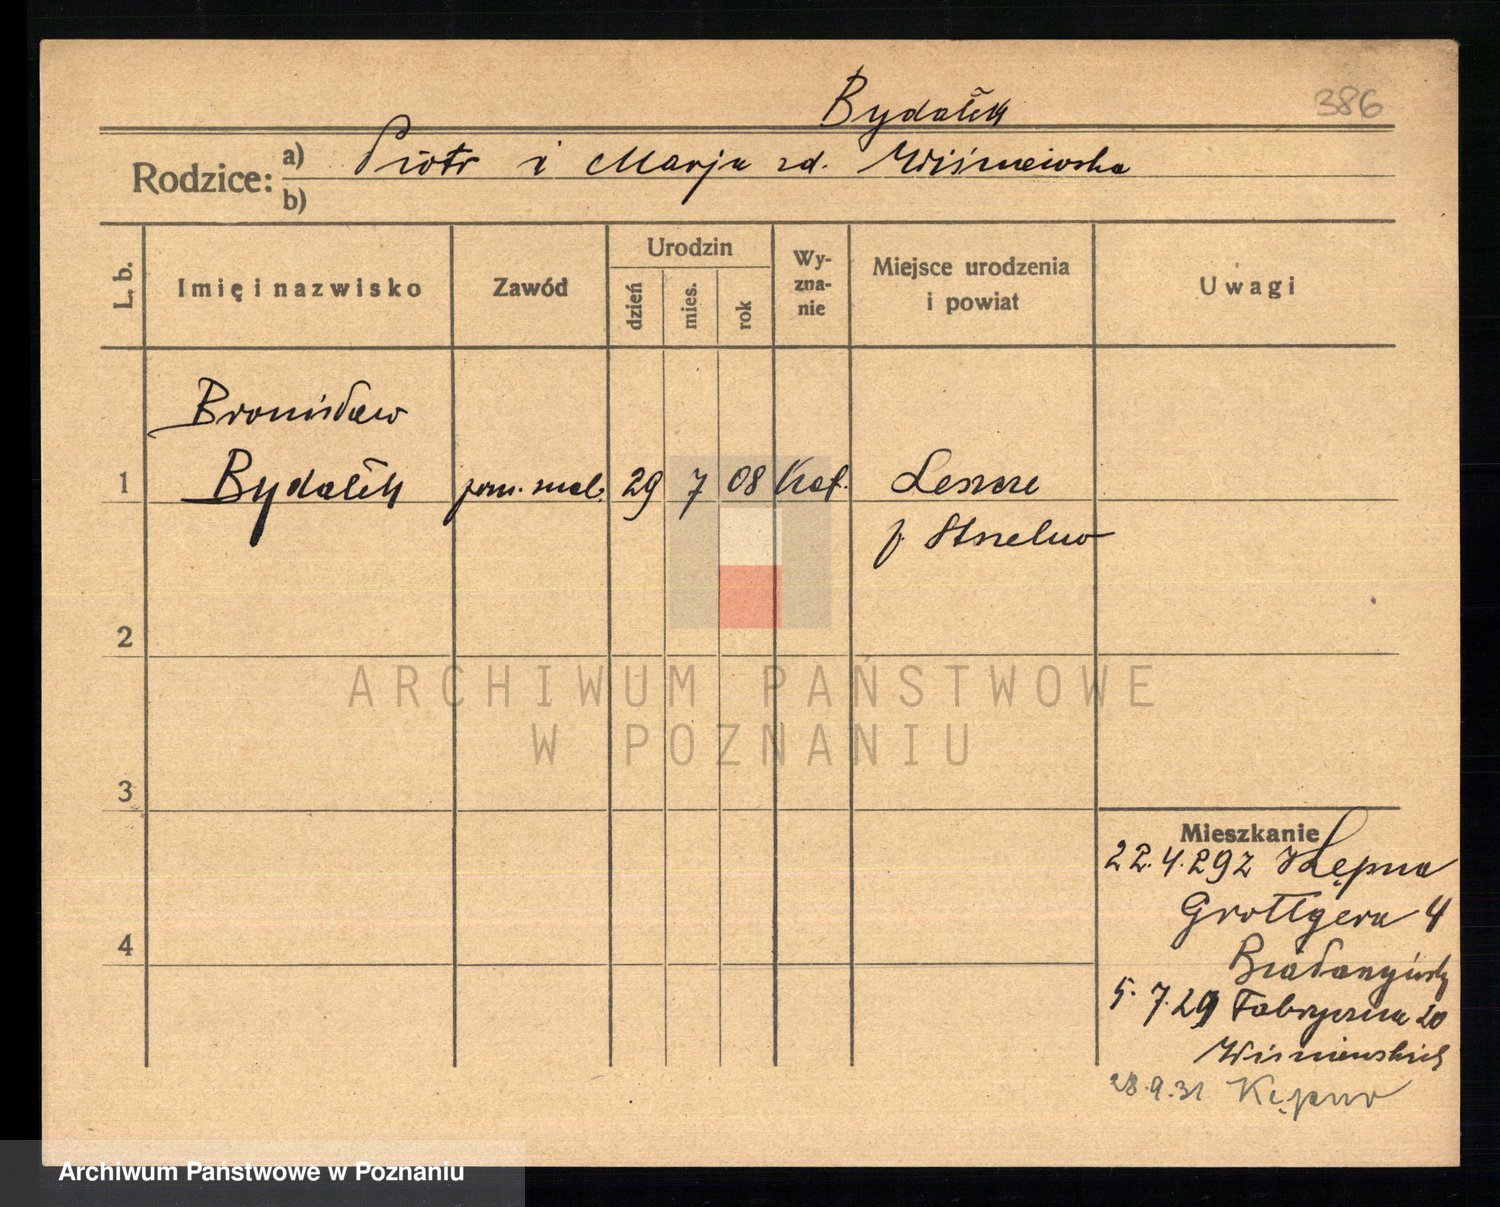 386
Bydałek
Rodzice: a) Piotr i Marja zd. Wiśniewska
b)
L. b.
Imię i nazwisko
Zawód
Urodzin
dzień
mies.
rok
Wy-
zna-
nie
Miejsce urodzenia
i powiat
Uwagi
Bronisław
1 Bydałek pom. mal. 29 7 08 Kat. Leszcze
p. Strzelno
2
ARCHIWUM PAŃSTWOWE
W POZNANIU
3
4
Mieszkanie
22.4.29 z Kępna
Grottgera 4
5.7.29 Fabryczna 20
Wiśniewskich
28.9.31 Kępno
Archiwum Państwowe w Poznaniu